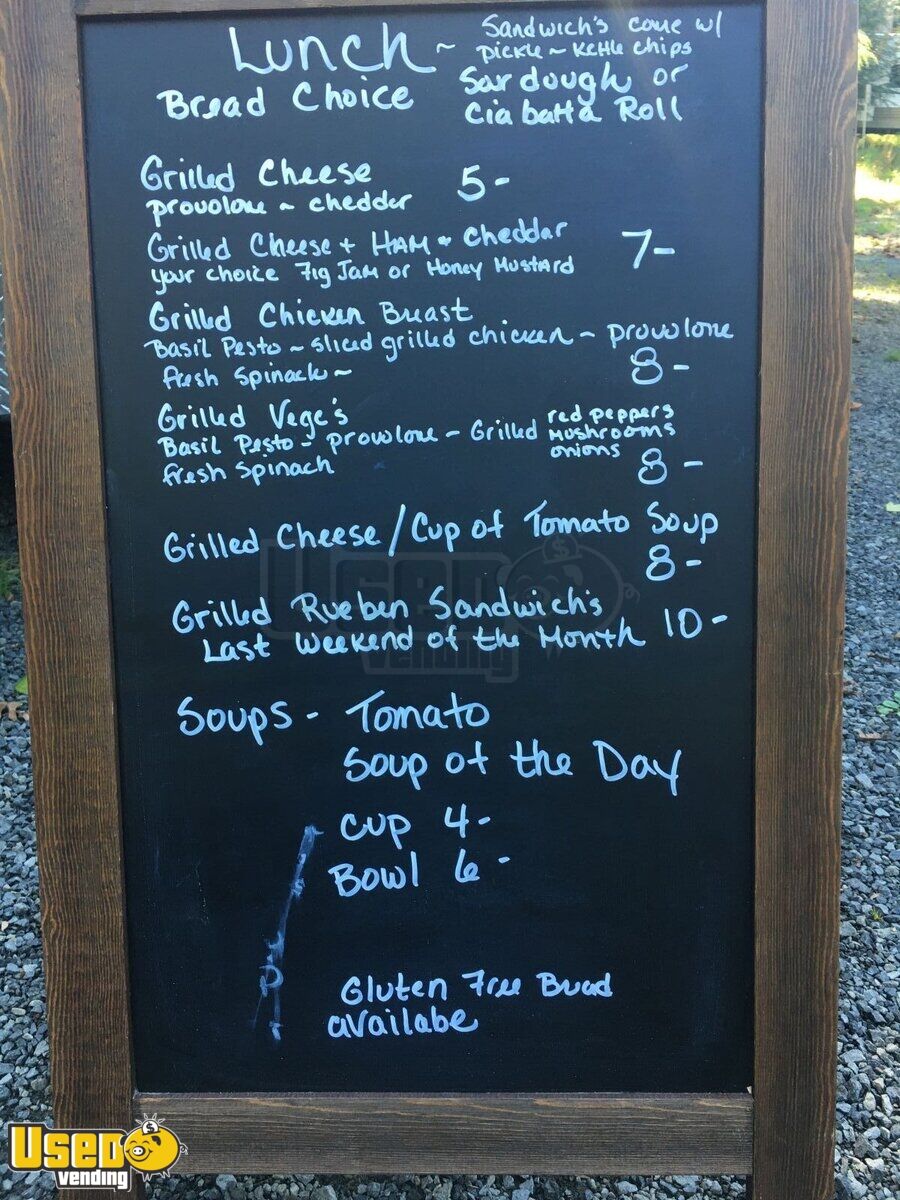 Lunch ~ Sandwich's come w/
pickle ~ Kettle chips
Bread Choice Sourdough or
Ciabatta Roll
Grilled Cheese 5-
provolone ~ cheddar
Grilled Cheese + HAM + cheddar 7-
your choice Fig Jam or Honey Mustard
Grilled Chicken Breast
Basil Pesto ~ sliced grilled chicken ~ provolone
fresh spinach ~ 8-
Grilled Vege's
Basil Pesto - provolone - Grilled red peppers
mushrooms
onions
fresh spinach 8-
Grilled Cheese / Cup of Tomato Soup
8-
Grilled Rueben Sandwich's
Last weekend of the Month 10-
Soups - Tomato
Soup of the Day
Cup 4-
Bowl 6-
Gluten Free Bread
availabe
Used
Vending
Used
Vending